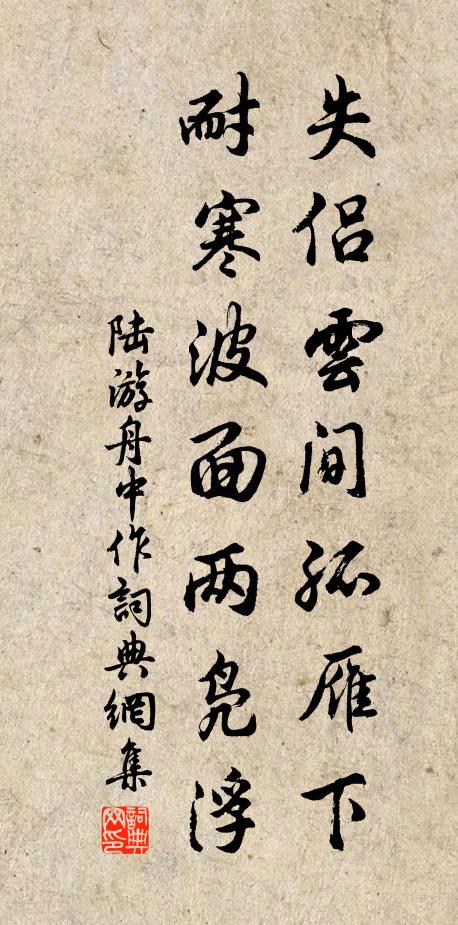 失侣雲間孤雁下
耐寒波面两凫浮
陆游舟中作詞典網集
詞典网印